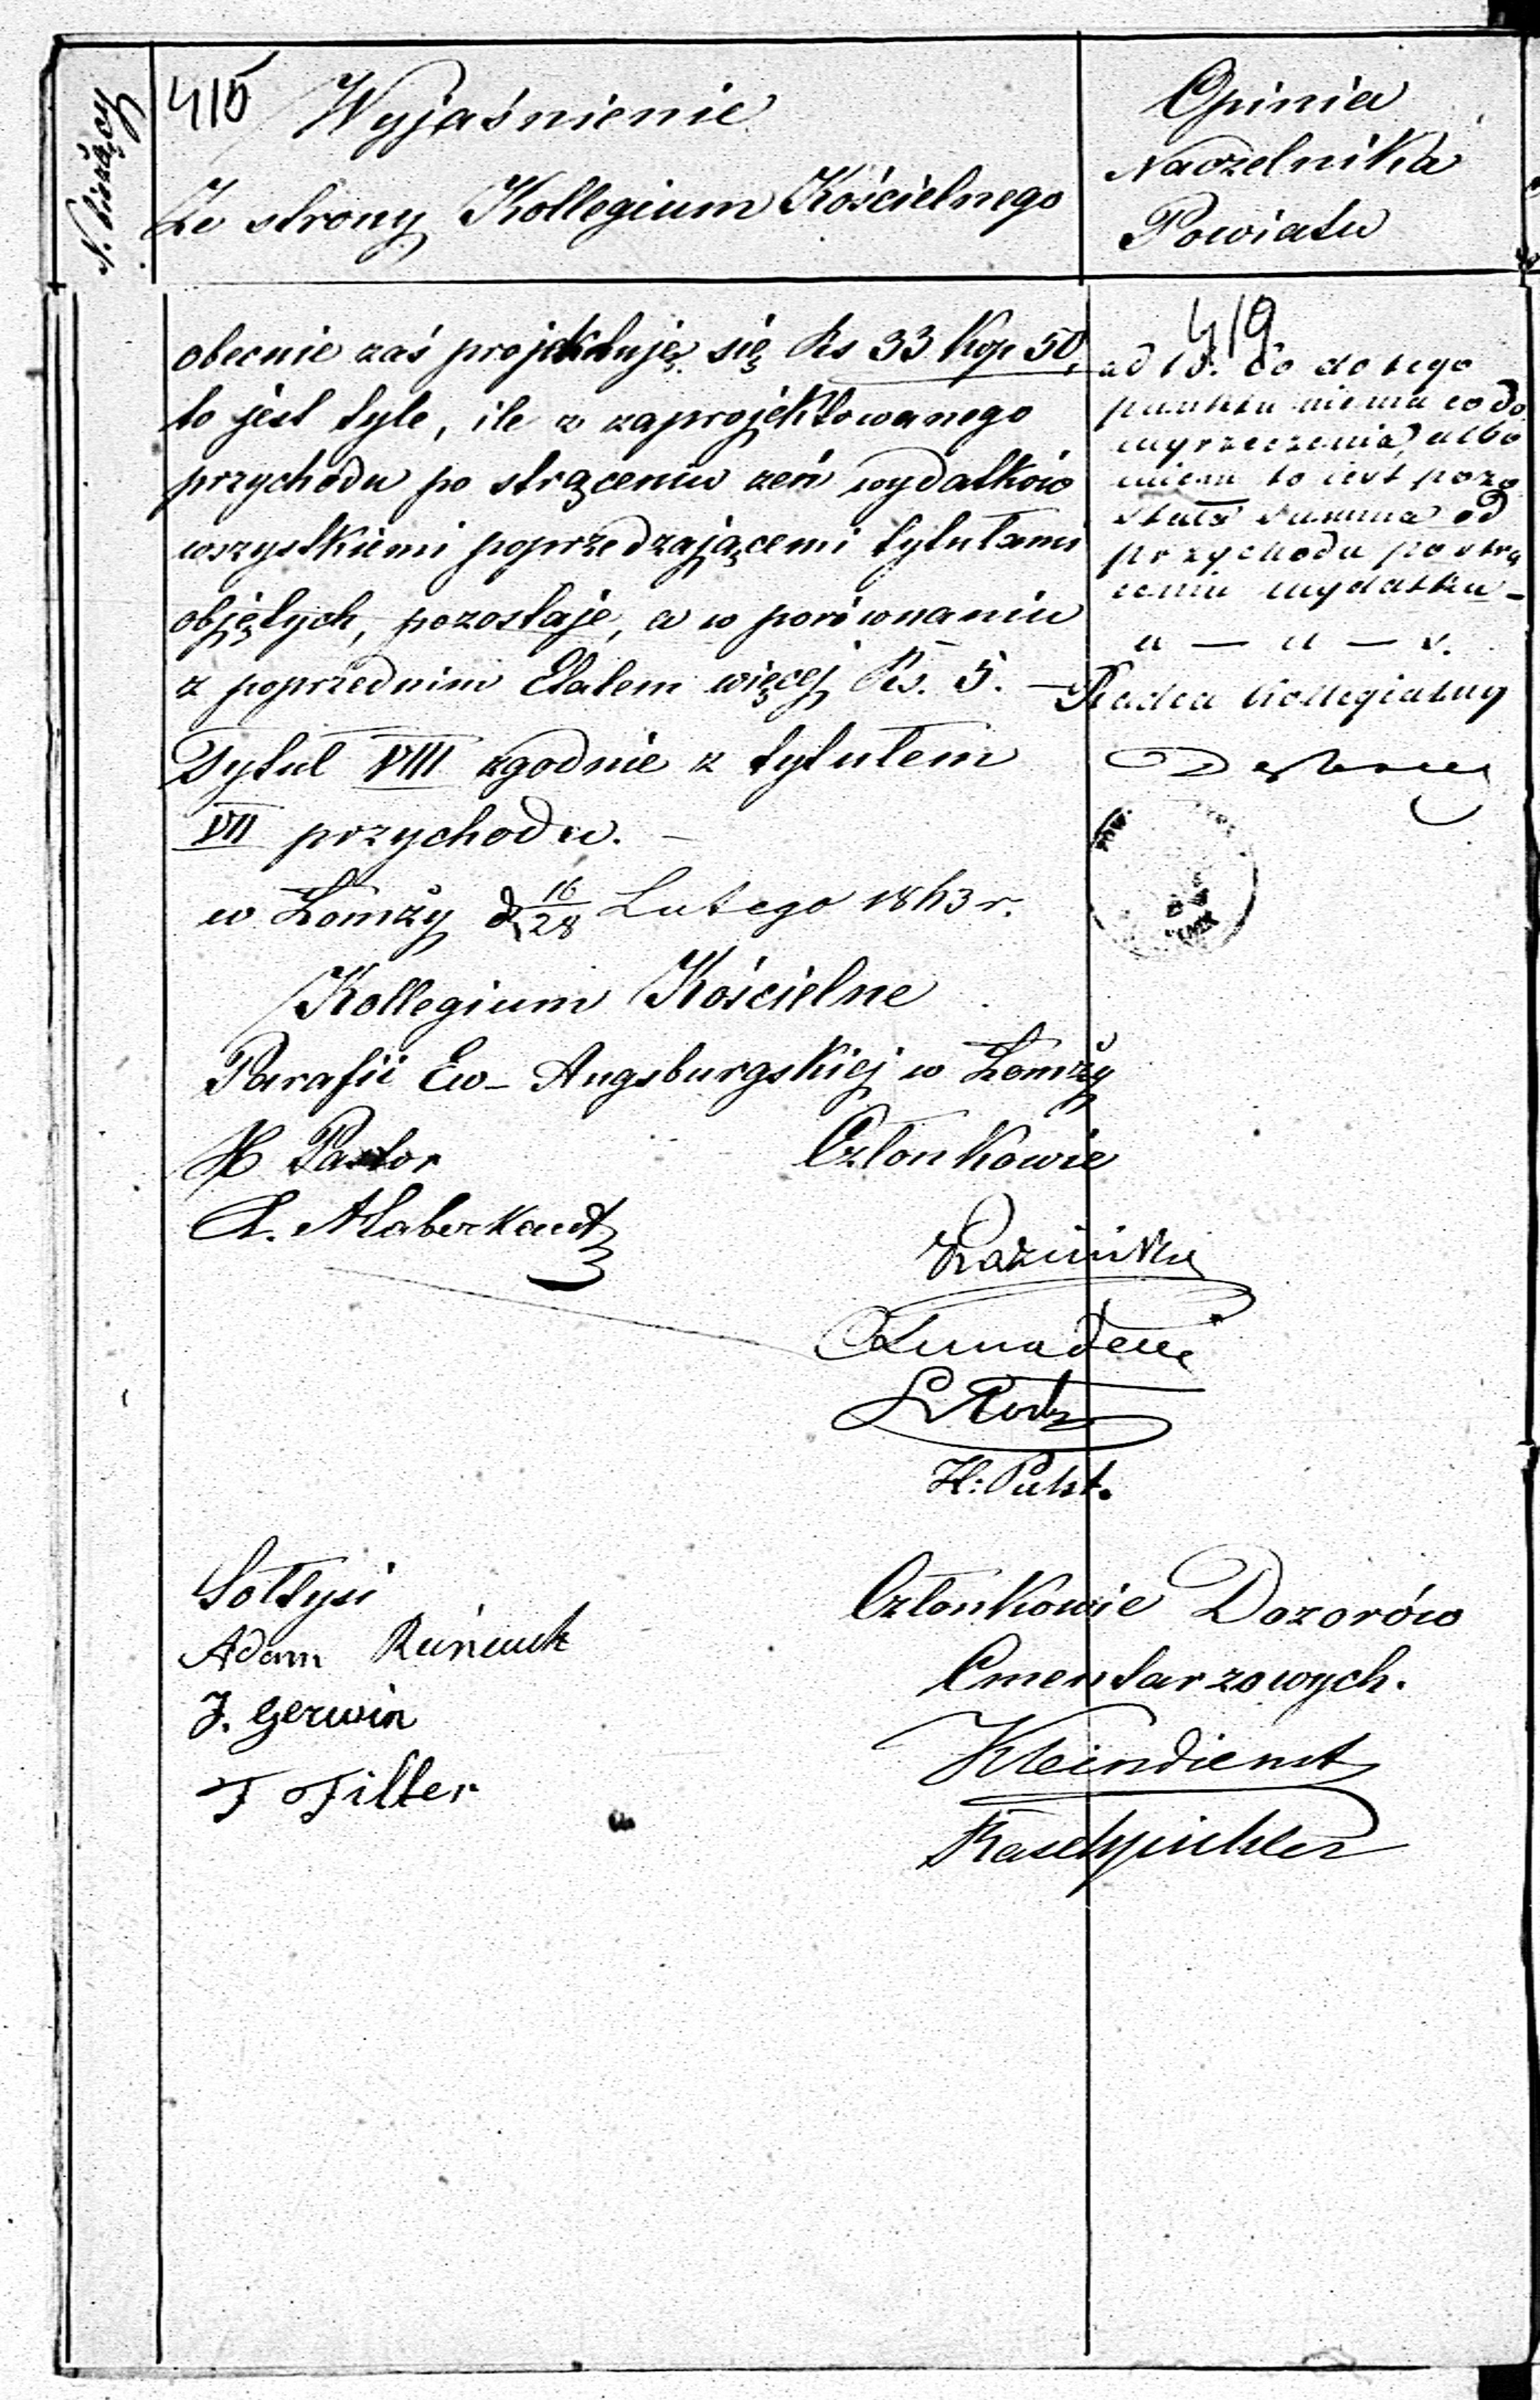 N. bieżący
415
Wyjaśnienie
Ze strony Kollegium Kościelnego
Opinia
Naczelnika
Powiatu
obecnie zaś projektuję się Rs 33 Kop 50,
to jest tyle, ile z zaprojektowanego
przychodu po strąceniu zeń wydatków
wszystkiemi poprzedzającemi tytułami
objętych, pozostaje, a w porównaniu
z poprzednim Etatem więcej Rs. 5. —
Tytuł VIII zgodnie z tytułem
VII przychodu. —
w Łomży d. 16/28 Lutego 1863 r.
Kollegium Kościelne
Parafii Ew- Augsburgskiej w Łomży
X Pastor
Członkowie
H: Pukst.
Sołtysi
Adam
J. Gerwin
F Filler
Członkowie Dozorów
Cmentarzowych.
Kleindienst
Raschpichler
419
ad 10. Co do tego
punktu niema co do
wyrzeczenia, albo
wiem to jest pozo
stała summa od
przychodu po strą
ceniu wydatku –
Radca Kollegialny